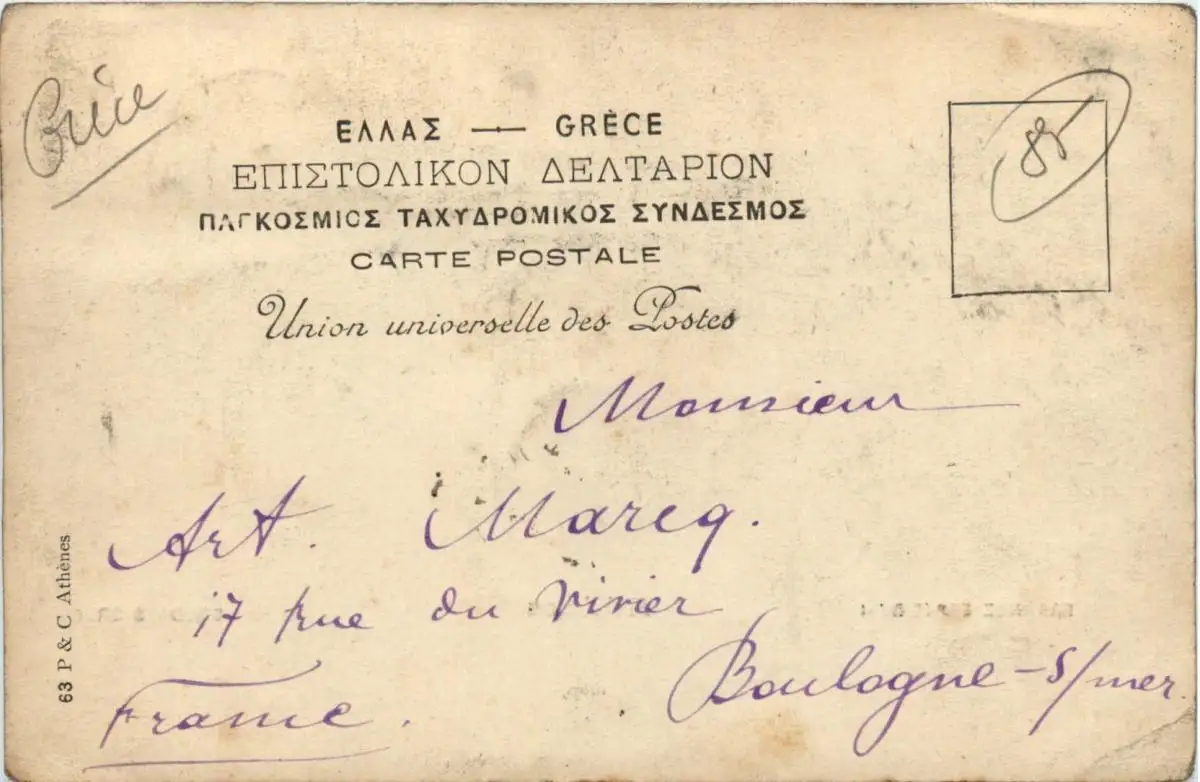 Grèce
ΕΛΛΑΣ — GRÈCE
ΕΠΙΣΤΟΛΙΚΟΝ ΔΕΛΤΑΡΙΟΝ
ΠΑΓΚΟΣΜΙΟΣ ΤΑΧΥΔΡΟΜΙΚΟΣ ΣΥΝΔΕΣΜΟΣ
CARTE POSTALE
Union universelle des Postes
Monsieur
Art. Marcq.
17 rue du Vivier
Boulogne-s/mer
France.
63 P & C Athènes